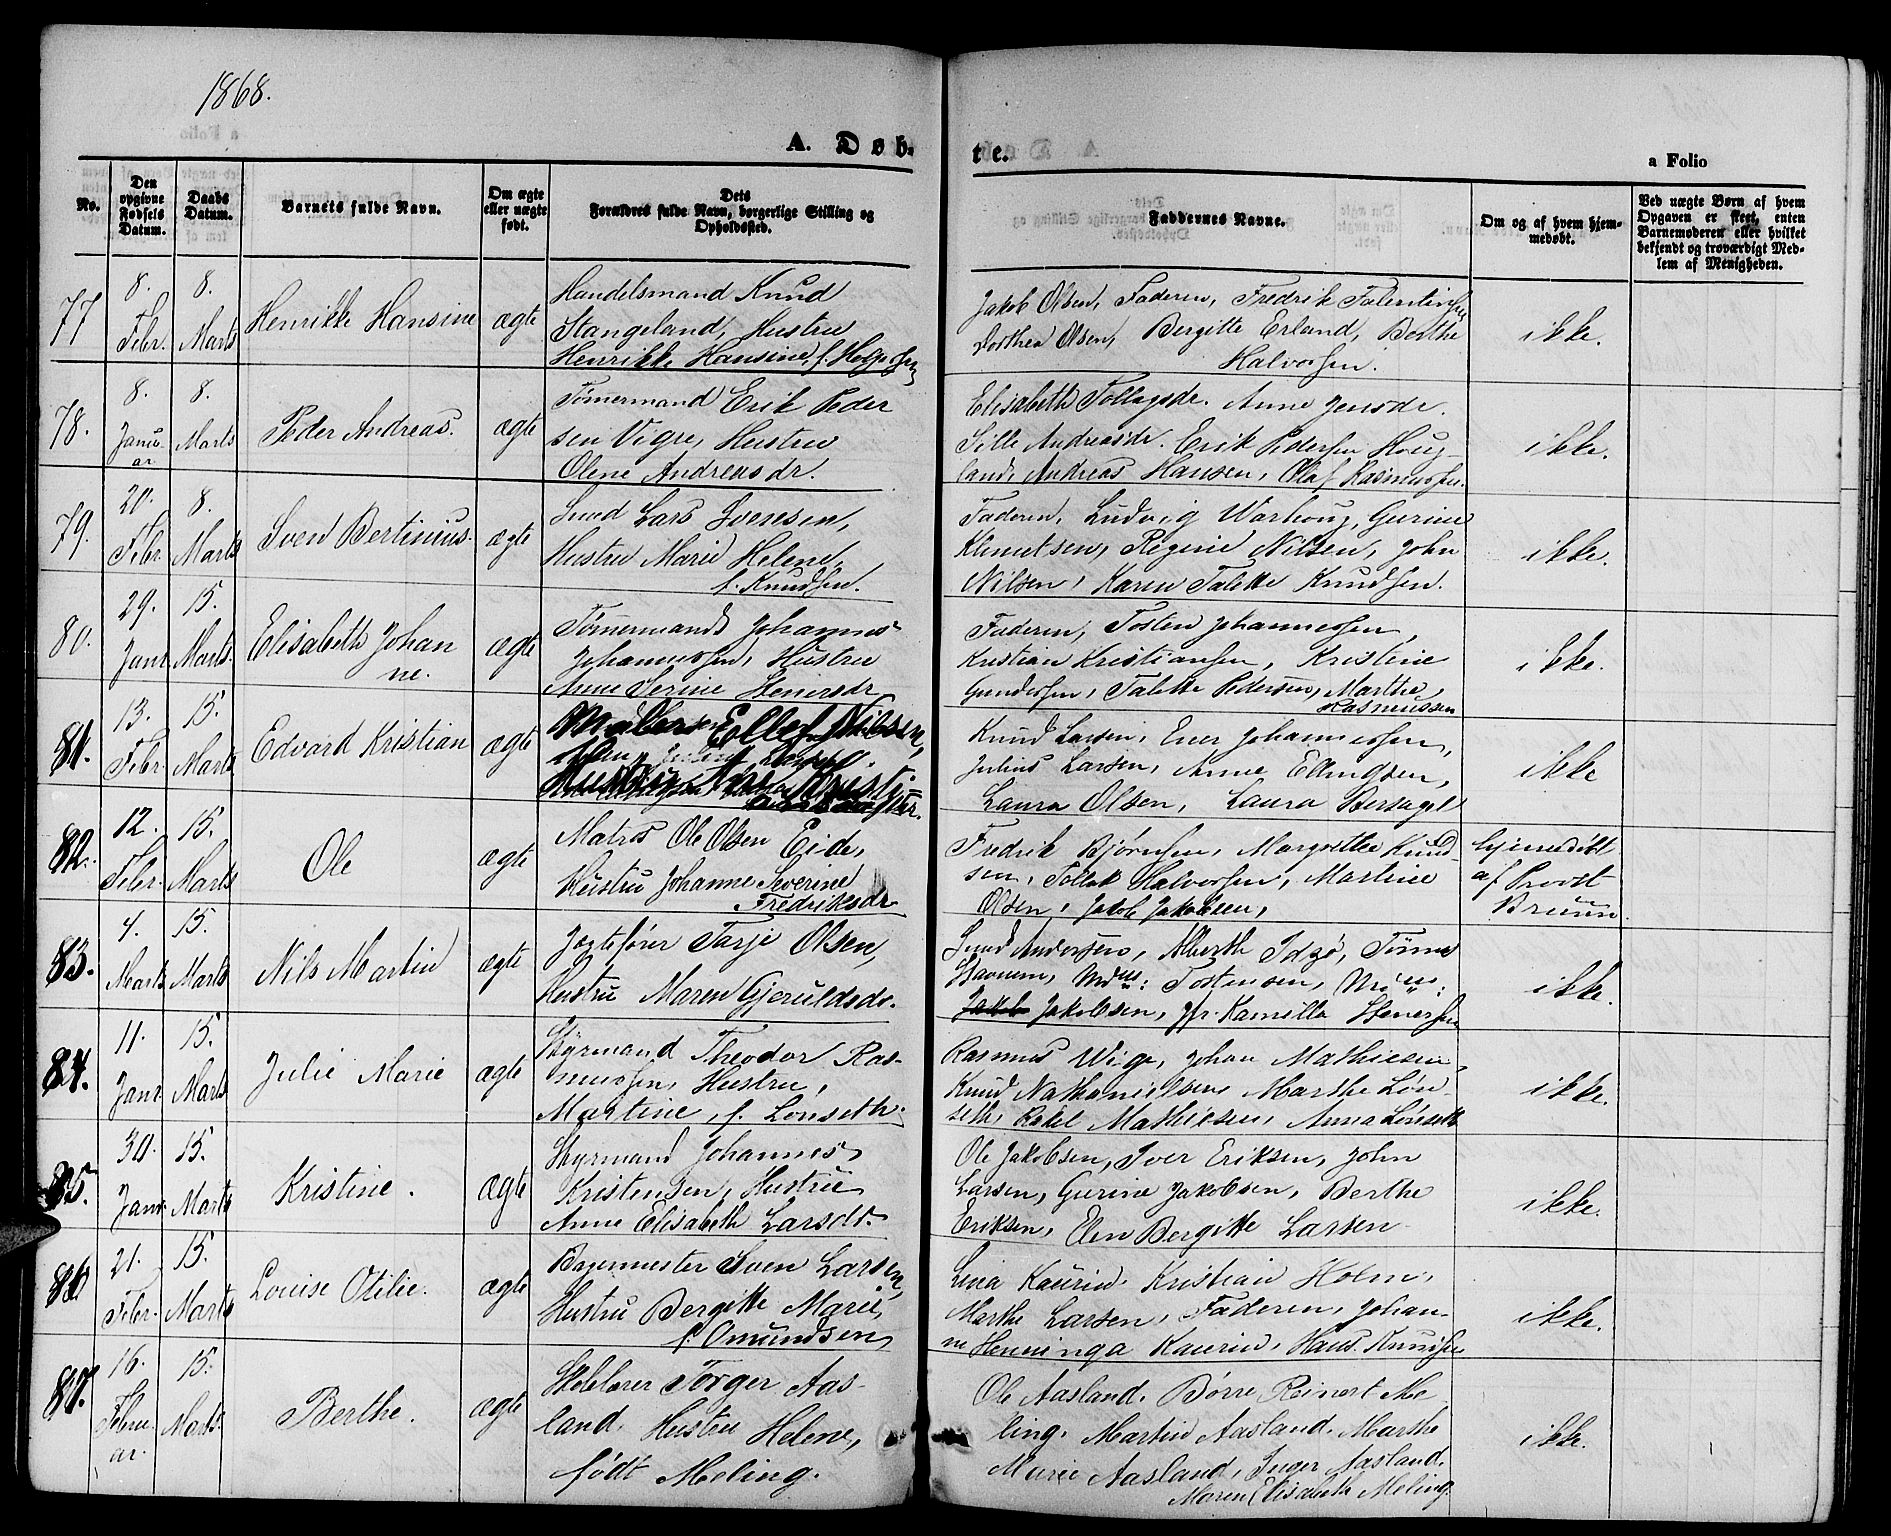 1868.
A. Døb-
te.
a Folio
No.
Den opgivne Fødsels Datum.
Daabs Datum.
Barnets fulde Navn.
Om ægte eller uægte født.
Dets Forældres fulde Navn, borgerlige Stilling og Opholdssted.
Faddernes Navne.
Om og af hvem hjemmedøbt.
Ved uægte Børn af hvem Opgaven er skeet, enten Barnemoderen eller hvilket bekjendt og troværdigt Medlem af Menigheden.
77
8. Febr.
8. Marts
Henrikke Hansine
ægte
Handelsmand Knud
Stangeland, Hustru
Henrikke Hansine, f.
Jakob Olsen, Faderen, Fredrik
Dorthea Olsen, Bergitte Erland, Berthe
Halvorsen.
ikke.
78.
8. Januar
8. Marts
Peder Andreas.
ægte
Tømermand Erik Peder
sen Vigre, Hustru
Olene Andreasdr.
Elisabeth Tollagsdr. Anne Jensdr.
Sille Andreasdr. Erik Pedersen Houg-
land, Andreas Hansen, Olaf Rasmussen.
ikke.
79.
20. Febr.
8. Marts
Sven Bertinius.
ægte
Smed Lars Iversen,
Hustru Marie Helene,
f. Knudsen.
Faderen, Ludvig Warhoug, Gurine
Klemetsen, Regine Nilsen, John
Nilsen, Karen Talette Knudsen.
ikke.
80.
29. Janr
15. Marts.
Elisabeth Johan
ne.
ægte
Tømermand Johannes
Johannessen, Hustru
Anne Serine
Faderen, Tosten Johannessen,
Kristian Kristiansen, Kristine
Gundersen, Talette Pedersen, Marthe
Rasmussen
ikke.
81.
13. Febr.
15. Marts
Edvard Kristian
ægte
Maler Ellef Nilsen,
Knud Larsen, Ener Johannessen,
Julius Larsen, Anne Ellingsen,
Laura Olsen, Laura Bersagel
ikke
82.
12. Febr.
15. Marts
Ole
ægte
Matros Ole Olsen Eide,
Hustru Johanne Severine
Fredriksdr
Fredrik Bjørnsen, Margrethe Knud-
sen, Tollak Halvorsen, Martine
Olsen, Jakob Jakobsen,
hjemedøbt
af Provst
Bruun.
83.
4. Marts
15. Marts
Nils Martin
ægte
Jægtefører Tarje Olsen,
Hustru Maren Gjeruldsdr.
Svend Andersen, Alberth Idsø, Tønnes
Stavnem, Tostensen,
Jakobsen, Jfr. Kamilla Stenersen
ikke.
84.
11. Janr
15. Marts
Julie Marie
ægte
Styrmand Theodor Ras-
mussen, Hustru,
Martine, f. Lønseth.
Rasmus Wige, Johan Mathiesen,
Knud Nathanielsen Marthe Løn-
seth, Rakel Mathiesen, Anna Lønseth
ikke.
85.
30. Janr.
15. Marts
Kristine.
ægte
Styrmand Johannes
Kristensen, Hustru
Anne Elisabeth Larsdr.
Ole Jakobsen, Iver Eriksen, John
Larsen, Gurine Jakobsen, Berthe
Eriksen, Elen Bergitte Larsen
ikke.
86
21. Febr.
15. Marts
Louise Otilie.
ægte
Bagermester Sven Larsen,
Hustru Bergitte Marie,
f. Omundsen
Lina Kaurin. Kristian Holm,
Marthe Larsen, Faderen, Johan-
ne Henninga Kaurin, Hans Knudsen
ikke.
87.
16. Februar.
15. Marts.
Berthe.
ægte
Torger Aas-
land, Hustru Helene,
født Meling.
Ole Aasland. Børre Reinert Me
ling. Martin Aasland. Marthe
Marie Aasland, Inger Aasland.
Maren Elisabeth Meling.
ikke.